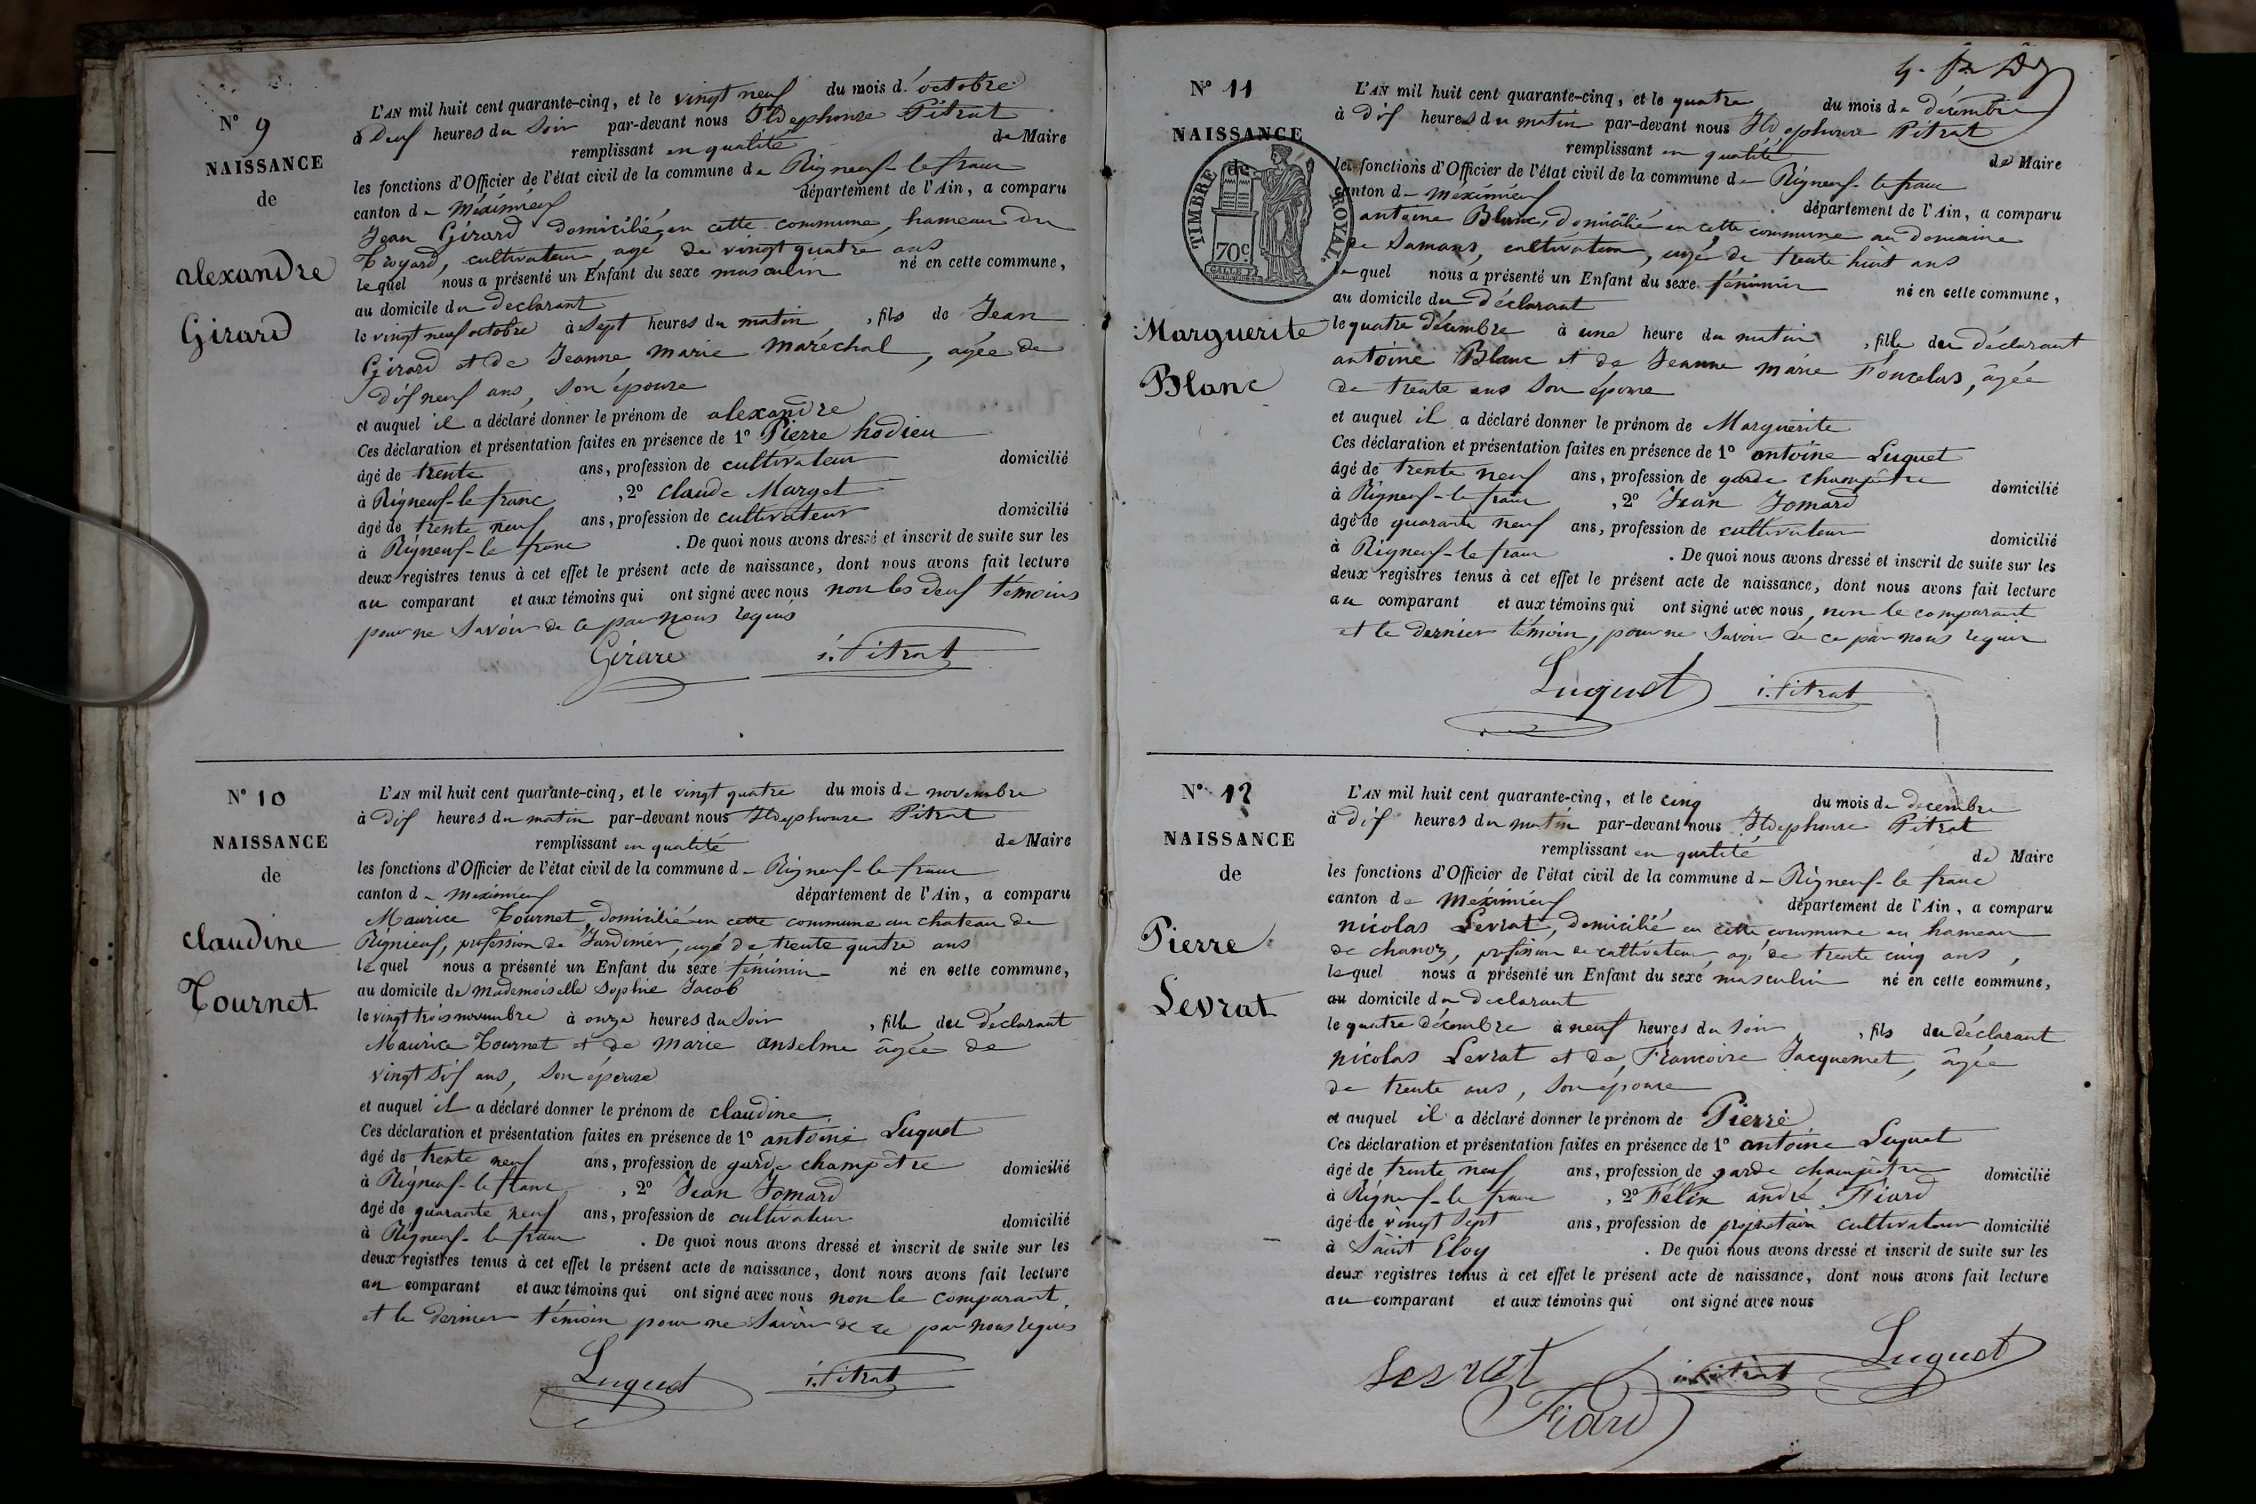 N° 9
NAISSANCE
de
alexandre
Girard
L'AN mil huit cent quarante-cinq, et le vingt neuf du mois d'octobre
à deux heures du soir par-devant nous Ildephonse Pitrat
remplissant en qualité de Maire
les fonctions d'Officier de l'état civil de la commune de Rigneux-le franc
canton de Méximieux département de l'Ain, a comparu
Jean Girard domicilié en cette commune, hameau du
Troyard, cultivateur, agé de vingt quatre ans
lequel nous a présenté un Enfant du sexe masculin né en cette commune,
au domicile du déclarant
le vingt neuf octobre à sept heures du matin, fils de Jean
Girard et de Jeanne Marie Maréchal, agée de
dix neuf ans, son épouse
et auquel il a déclaré donner le prénom de alexandre
Ces déclaration et présentation faites en présence de 1° Pierre hodieu
âgé de trente ans, profession de cultivateur domicilié
à Rigneux-le franc, 2° Claude Marget
âgé de trente neuf ans, profession de cultivateur domicilié
à Rigneux-le franc. De quoi nous avons dressé et inscrit de suite sur les
deux registres tenus à cet effet le présent acte de naissance, dont nous avons fait lecture
au comparant et aux témoins qui ont signé avec nous non les deux témoins
pour ne savoir de ce par nous requis
Girare i. Pitrat
N° 10
NAISSANCE
de
claudine
Tournet
L'AN mil huit cent quarante-cinq, et le vingt quatre du mois de novembre
à dix heures du matin par-devant nous Ildephonse Pitrat
remplissant en qualité de Maire
les fonctions d'Officier de l'état civil de la commune de Rigneux-le franc
canton de Méximieux département de l'Ain, a comparu
Maurice Tournet, domicilié en cette commune au chateau de
Rignieux, profession de Jardinier, agé de trente quatre ans
lequel nous a présenté un Enfant du sexe féminin né en cette commune,
au domicile de Mademoiselle Sophie Jacob
le vingt trois novembre à onze heures du soir, fille du déclarant
Maurice Tournet et de Marie anselme âgée de
vingt six ans, son épouse
et auquel il a déclaré donner le prénom de claudine
Ces déclaration et présentation faites en présence de 1° antoine Luquet
âgé de trente neuf ans, profession de garde champêtre domicilié
à Rigneux-le franc, 2° Jean Jomard
âgé de quarante neuf ans, profession de cultivateur domicilié
à Rigneux-le franc. De quoi nous avons dressé et inscrit de suite sur les
deux registres tenus à cet effet le présent acte de naissance, dont nous avons fait lecture
au comparant et aux témoins qui ont signé avec nous non le comparant
et le dernier témoin pour ne savoir de ce par nous requis
Luquet i. Pitrat
N° 11
NAISSANCE
de
TIMBRE ROYAL.
70c
Marguerite
Blanc
L'AN mil huit cent quarante-cinq, et le quatre du mois de décembre
à dix heures du matin par-devant nous Ildephonse Pitrat
remplissant en qualité de Maire
les fonctions d'Officier de l'état civil de la commune de Rigneux-le franc
canton de Méximieux département de l'Ain, a comparu
antoine Blanc, domicilié en cette commune au domaine
de Samans, cultivateur, agé de trente huit ans
lequel nous a présenté un Enfant du sexe féminin né en cette commune,
au domicile du déclarant
le quatre décembre à une heure du matin, fille du déclarant
antoine Blanc et de Jeanne Marie Foucelas, âgée
de trente ans son épouse
et auquel il a déclaré donner le prénom de Marguerite
Ces déclaration et présentation faites en présence de 1° antoine Luquet
âgé de trente neuf ans, profession de garde champêtre domicilié
à Rigneux-le franc, 2° Jean Jomard
âgé de quarante neuf ans, profession de cultivateur domicilié
à Rigneux-le franc. De quoi nous avons dressé et inscrit de suite sur les
deux registres tenus à cet effet le présent acte de naissance, dont nous avons fait lecture
au comparant et aux témoins qui ont signé avec nous, non le comparant
et le dernier témoin, pour ne savoir de ce par nous requis
Luquet i. Pitrat
N° 12
NAISSANCE
de
Pierre
Levrat
L'AN mil huit cent quarante-cinq, et le cinq du mois de decembre
à dix heures du matin par-devant nous Ildephonse Pitrat
remplissant en qualité de Maire
les fonctions d'Officier de l'état civil de la commune de Rigneux-le franc
canton de Méximieux département de l'Ain, a comparu
nicolas Levrat, domicilié en cette commune au hameau
de chanoz, profession de cultivateur, agé de trente cinq ans,
lequel nous a présenté un Enfant du sexe masculin né en cette commune,
au domicile du déclarant
le quatre décembre à neuf heures du soir, fils du déclarant
nicolas Levrat et de Francoise Jacquemet, âgée
de trente ans, son épouse
et auquel il a déclaré donner le prénom de Pierre
Ces déclaration et présentation faites en présence de 1° antoine Luquet
âgé de trente neuf ans, profession de garde champêtre domicilié
à Rigneux-le franc, 2° Félix andré Fiard
âgé de vingt sept ans, profession de propriétaire cultivateur domicilié
à Saint Eloy. De quoi nous avons dressé et inscrit de suite sur les
deux registres tenus à cet effet le présent acte de naissance, dont nous avons fait lecture
au comparant et aux témoins qui ont signé avec nous
Levrat i. Pitrat Luquet
Fiard